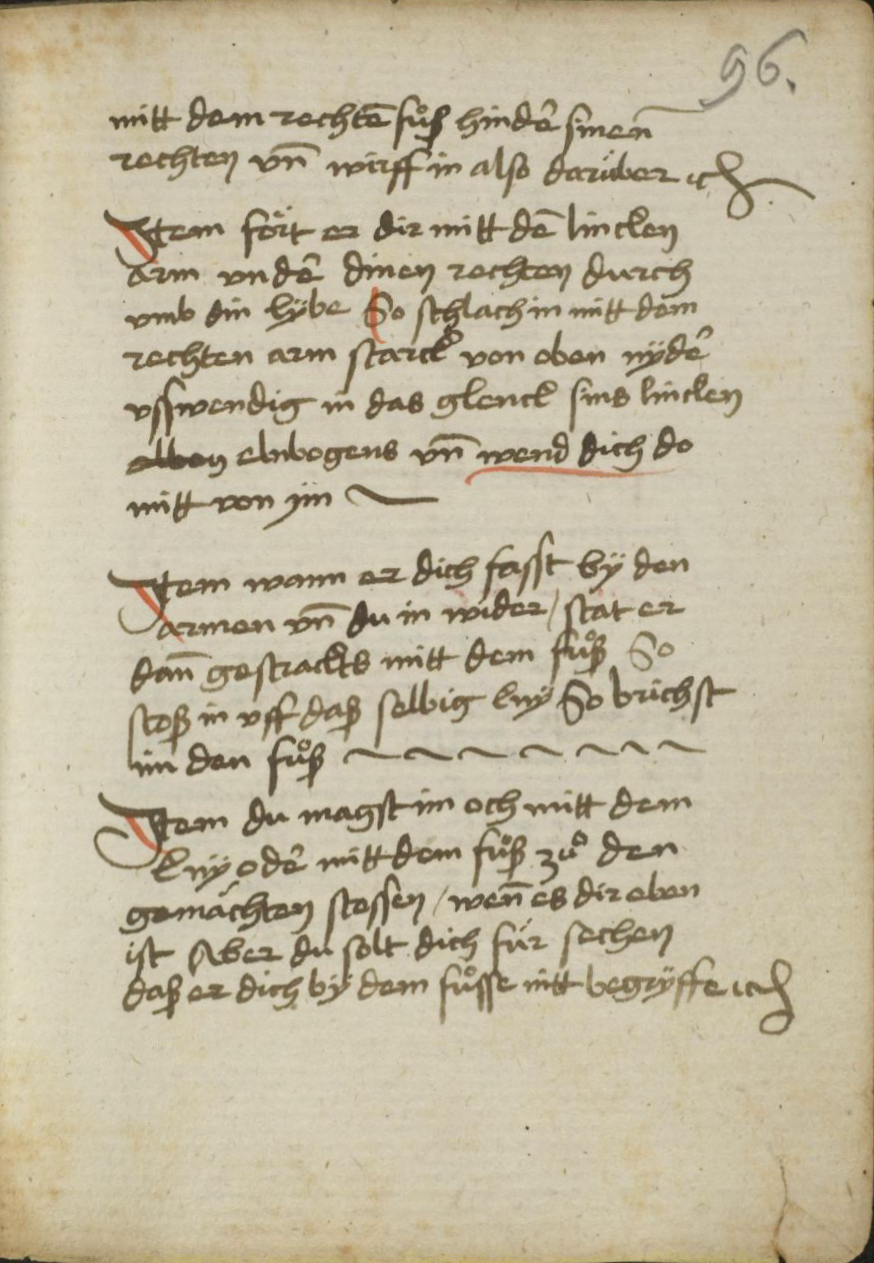 96.
mitt dem rechtē fůß hinder sinen̄
rechten vn̄ wirff in also darüber ⁊c
Item fört er dir mitt dē lincken
arm vnder dinen rechten durch
vmb din lÿbe So schlach in mitt dem
rechten arm starck von oben nÿder
vsswendig in das glenck sins lincken
elnbogens vn̄ wend dich do
mitt von jm
Item wann er dich fasst bÿ den
armen vn̄ du in wider / stat er
dan̄ gestrackts mitt dem fůß So
stoß in vff daß selbig knÿ So brichst
im den fůß
Item du magst im och mitt dem
knÿ oder mitt dem fůß zů den
gemächten stossen / wen̄ es dir eben
ist Aber du solt dich für sechen
daß er dich bÿ dem fůsse nitt begrÿffe ⁊c